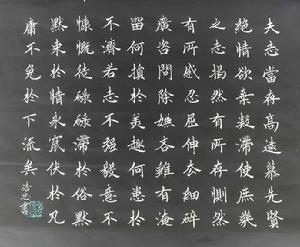 夫志當存高遠慕先賢
絕情欲棄凝滯使庶幾
之志揭然有所存惻然
有所感忍屈伸去細碎
廣咨問除嫌吝雖有淹
留何損於美趣何患於
不濟若志不強毅意不
慷慨徒碌碌滯於俗默
默束於情永竄伏於凡
庸不免於下流矣